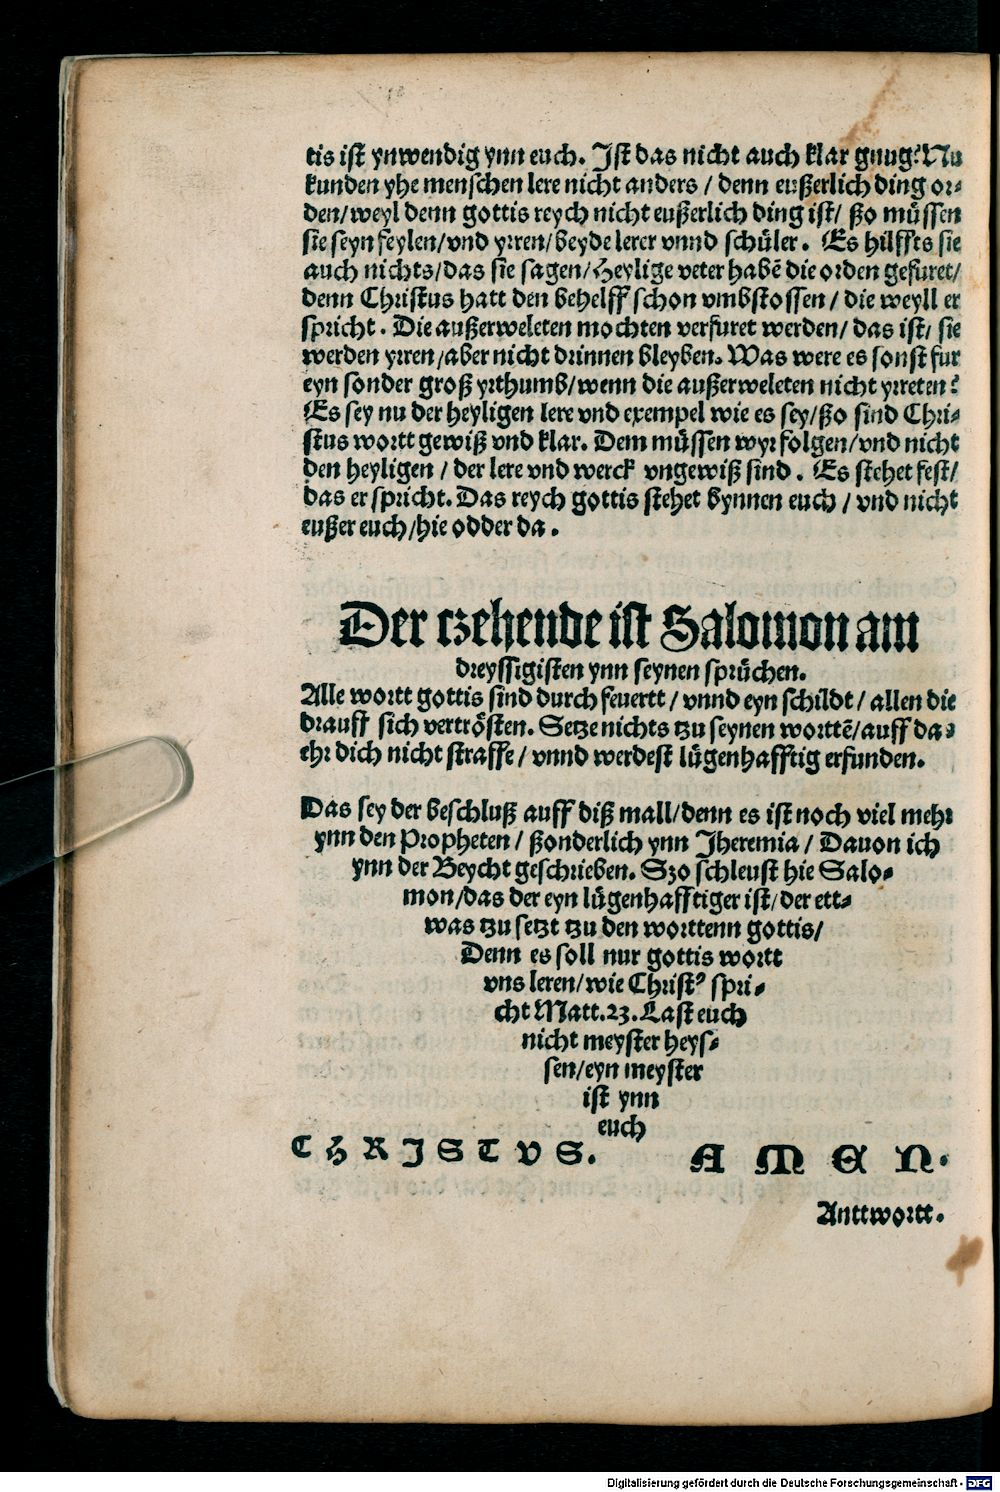 tis ist ynwendig ynn euch. Ist das nicht auch klar gnug? Nu
kunden yhe menschen lere nicht anders / denn eußerlich ding or-
den/weyl denn gottis reych nicht eußerlich ding ist/ ßo müssen
sie seyn feylen/vnd yrren/beyde lerer vnnd schüler. Es hilffts sie
auch nichts/das sie sagen/Heylige veter habē die orden gefuret/
denn Christus hatt den behelff schon vmbstossen / die weyll er
spricht. Die außerweleten mochten verfuret werden/ das ist/ sie
werden yrren/aber nicht drinnen bleyben. Was were es sonst fur
eyn sonder groß yrthumb/wenn die außerweleten nicht yrreten?
Es sey nu der heyligen lere vnd exempel wie es sey/ßo sind Chri-
stus wortt gewiß vnd klar. Dem müssen wyr folgen/vnd nicht
den heyligen / der lere vnd werck vngewiß sind. Es stehet fest/
das er spricht. Das reych gottis stehet bynnen euch / vnd nicht
eußer euch/hie odder da.
Der tzehende ist Salomon am
dreyssigisten ynn seynen sprüchen.
Alle wortt gottis sind durch feuertt / vnnd eyn schildt / allen die
drauff sich vertrösten. Setze nichts tzu seynen worttē/auff da-
ehr dich nicht straffe / vnnd werdest lügenhafftig erfunden.
Das sey der beschluß auff diß mall/denn es ist noch viel mehr
ynn den Propheten / ßonderlich ynn Jheremia / Dauon ich
ynn der Beycht geschrieben. Szo schleust hie Salo-
mon/das der eyn lügenhafftiger ist/der ett-
was tzu setzt tzu den worttenn gottis/
Denn es soll nur gottis wortt
vns leren/wie Christꝰ spri-
cht Matt.23. Last euch
nicht meyster heys-
sen/eyn meyster
ist ynn
euch
CHRISTVS. AMEN.
Anttwortt.
Digitalisierung gefördert durch die Deutsche Forschungsgemeinschaft - DFG